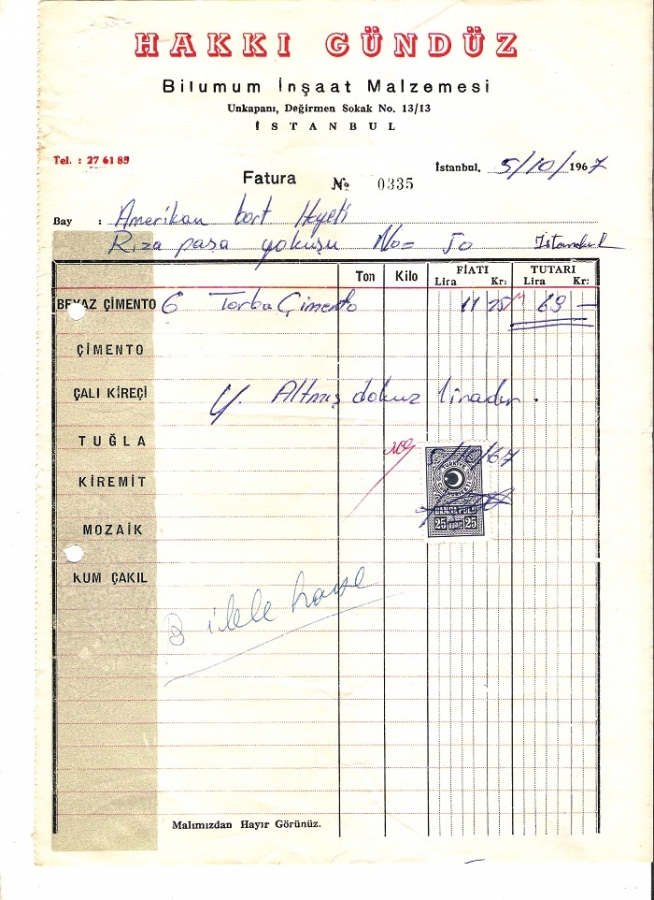 HAKKI GÜNDÜZ
Bilumum İnşaat Malzemesi
Unkapanı, Değirmen Sokak No. 13/13
İSTANBUL
Tel. : 27 61 85
İstanbul, 5/10/1967
Fatura № 0335
Bay : Amerikan bort Heyeti
Rıza paşa yokuşu No= 50 İstanbul
Ton Kilo FİATI TUTARI
Lira Kr: Lira Kr:
BEYAZ ÇİMENTO 6 Torba Çimento 11 69 —
ÇİMENTO
ÇALI KİREÇİ Y. Altmış dokuz liradır.
TUĞLA
KİREMİT
MOZAİK
KUM ÇAKIL
5/10/67
TÜRKİYE
25 25
Malımızdan Hayır Görünüz.